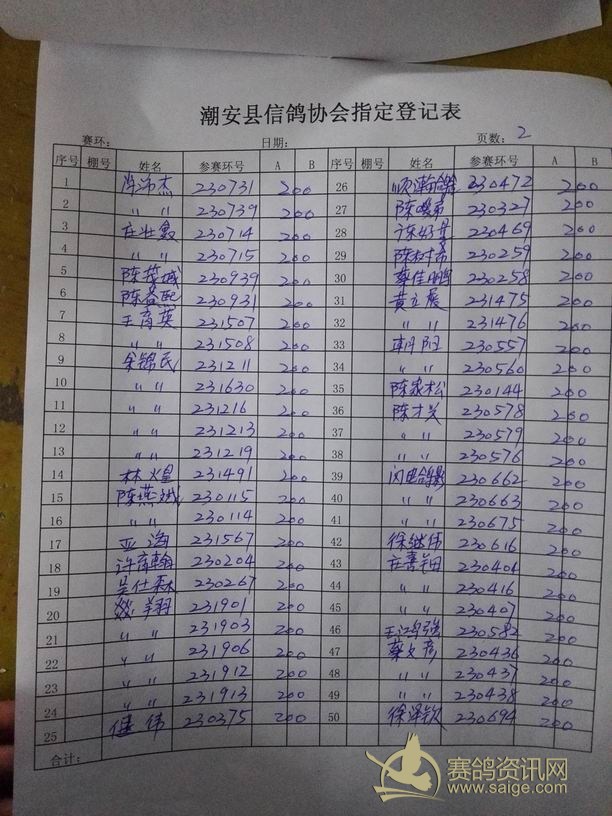 潮安县信鸽协会指定登记表
赛环: 日期: 页数: 2
序号 棚号 姓名 参赛环号 A B 序号 棚号 姓名 参赛环号 A B
1 230731 200 26 230472 200
2 〃 〃 230739 200 27 230327 200
3 230714 200 28 230469 200
4 〃 〃 230715 200 29 230259 200
5 230939 200 30 蔡佳鹏 230258 200
6 230931 200 31 黄立展 231475 200
7 王育英 231507 200 32 〃 〃 231476 200
8 〃 〃 231508 200 33 朝阳 230557 200
9 余锦民 231211 200 34 〃 〃 230560 200
10 〃 〃 231630 200 35 陈家松 230144 200
11 〃 〃 231216 200 36 230578 200
12 〃 〃 231213 200 37 〃 〃 230579 200
13 〃 〃 231219 200 38 〃 〃 230576 200
14 林火皇 231491 200 39 230662 200
15 陈燕斌 230115 200 40 〃 〃 230663 200
16 〃 〃 230114 200 41 〃 〃 230675 200
17 231567 200 42 徐继伟 230616 200
18 230204 200 43 230404 200
19 吴仕森 230267 200 44 〃 〃 230416 200
20 231901 200 45 〃 〃 230407 200
21 〃 〃 231903 200 46 230582 200
22 〃 〃 231906 200 47 蔡文彦 230436 200
23 〃 〃 231912 200 48 〃 〃 230437 200
24 〃 〃 231913 200 49 〃 〃 230438 200
25 健伟 230375 200 50 徐泽钦 230694 200
合计:
赛鸽资讯网
www.saige.com